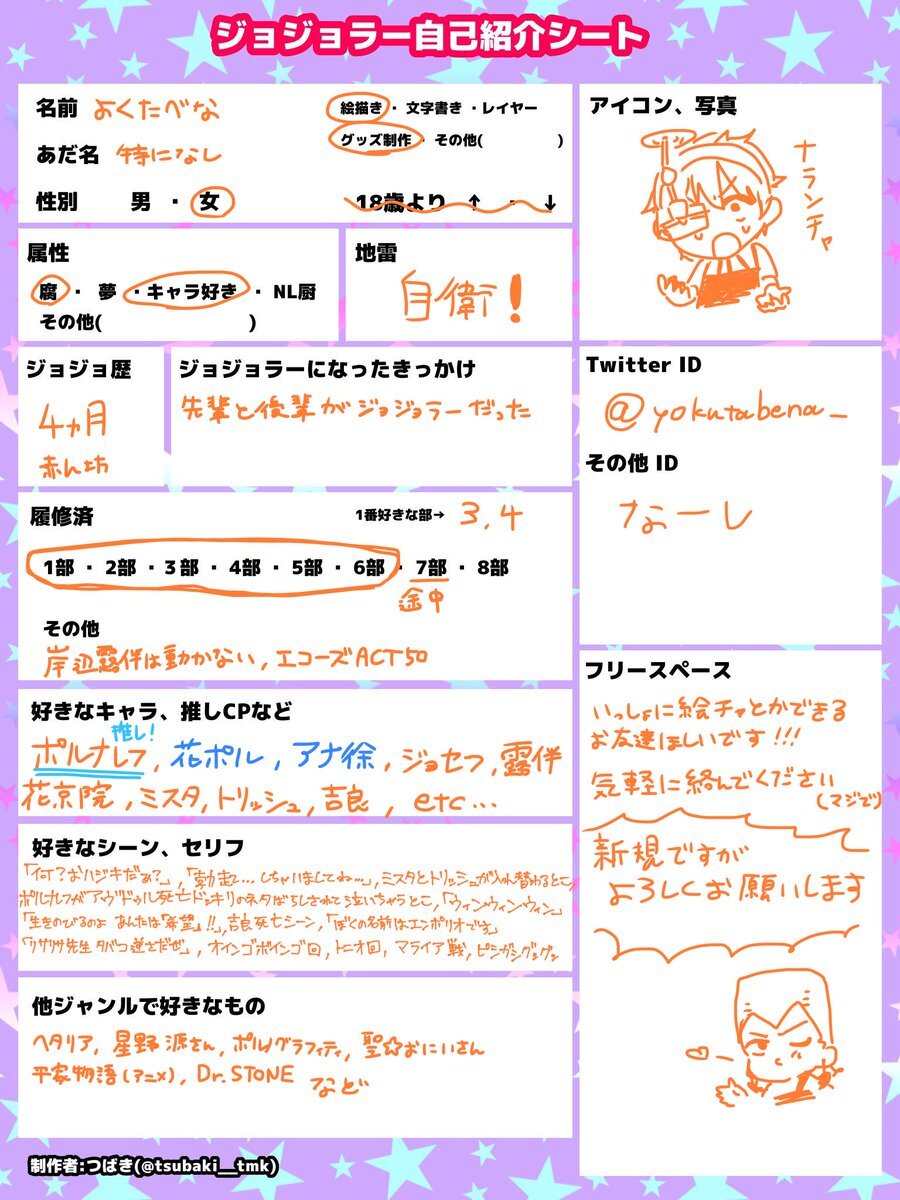 ジョジョラー自己紹介シート
名前 よくたべな
絵描き・文字書き・レイヤー
グッズ制作・その他( )
あだ名 特になし
性別 男・女
18歳より ↑ - ↓
属性
腐・夢・キャラ好き・NL厨
その他( )
地雷
自衛!
アイコン、写真
ナランチャ
ジョジョ歴
4ヵ月
赤ん坊
ジョジョラーになったきっかけ
先輩と後輩がジョジョラーだった
Twitter ID
@yokutabena_
その他 ID
なーし
履修済
1番好きな部→ 3,4
1部・2部・3部・4部・5部・6部・7部・8部
途中
その他
岸辺露伴は動かない, エコーズACT50
好きなキャラ、推しCPなど
推し!
ポルナレフ, 花ポル, アナ徐, ジョセフ, 露伴
花京院, ミスタ, トリッシュ, 吉良, etc...
好きなシーン、セリフ
「何?おハジキだあ?」,「勃起…しちゃいましてね…」, ミスタとトリッシュが入れ替わるとこ,
ポルナレフがアヴドゥル死亡ドッキリのネタばらしされて泣いちゃうとこ,「ウィンウィンウィン」
「生きのびるのよ あんたは「希望」!!, 吉良死亡シーン,「ぼくの名前はエンポリオです」
「リサリサ先生タバコ逆さだぜ」, オインゴボインゴ回, トニオ回, マライア戦,
他ジャンルで好きなもの
ヘタリア, 星野源さん, ポルノグラフィティ, 聖☆おにいさん
平家物語(アニメ), Dr.STONE など
フリースペース
いっしょに絵チャとかできる
お友達ほしいです!!!
気軽に絡んでください
(マジで)
新規ですが
よろしくお願いします
制作者:つばき(@tsubaki__tmk)